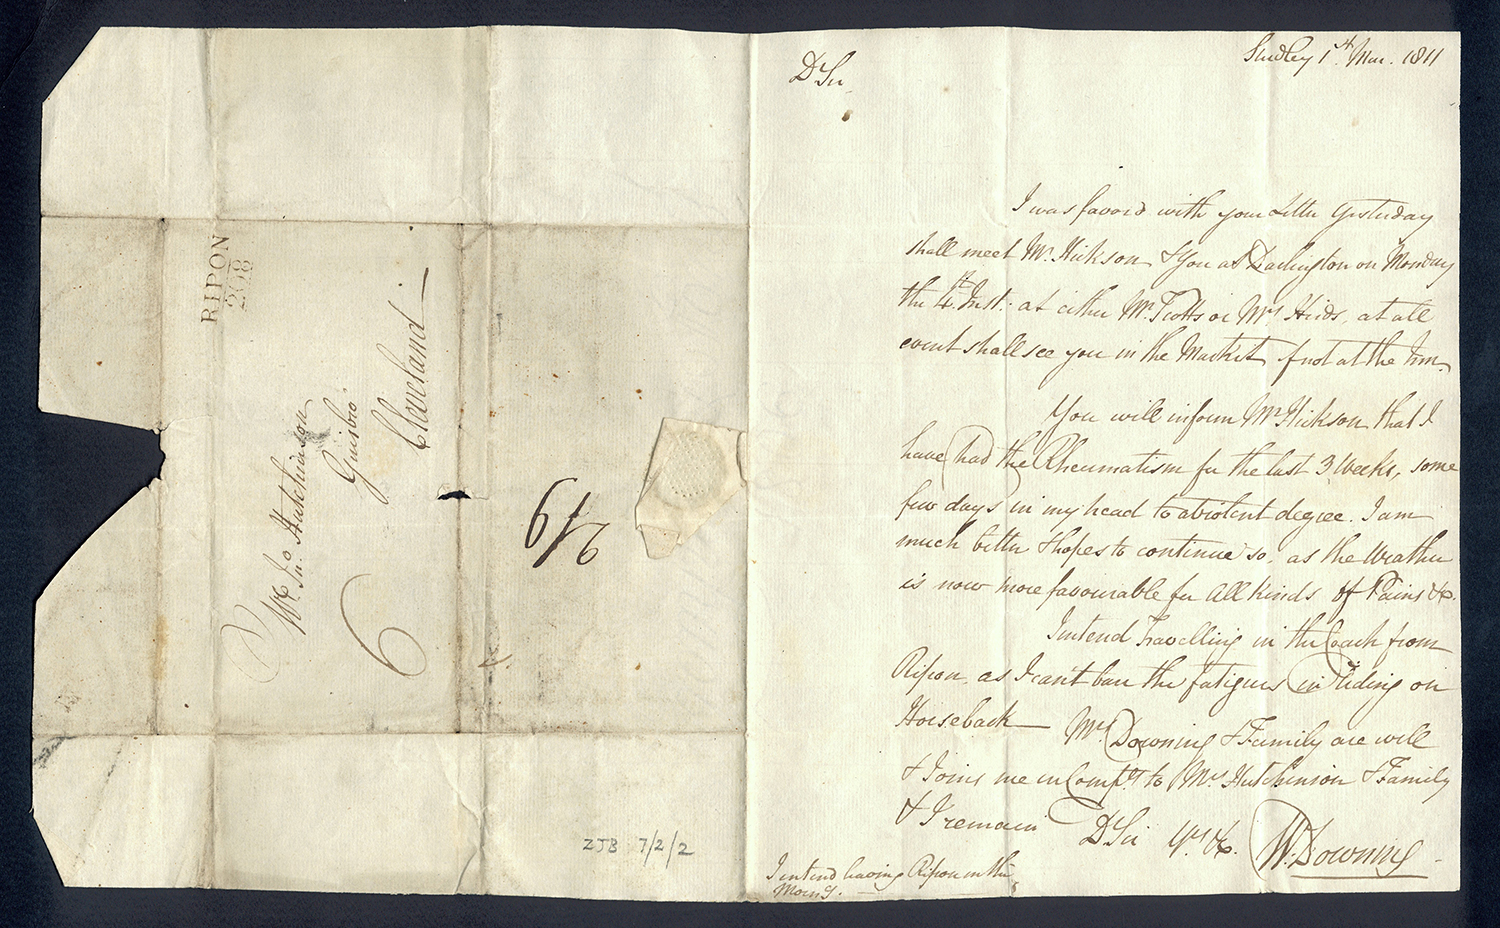 RIPON
208
Mr. Jno. Hutchinson
Guisbro'
Cleveland
6
ZJB 7/2/2
Studley 1st Mar. 1811
Dr Sir
I was favord with your Letter Yesterday
shall meet Mr. Hickson & You at Darlington on Monday
the 4th. Inst: at either Mr. Scotts or Mrs Hirds, at all
event shall see you in the Market if not at the Inn.
You will inform Mr Hickson that I
have had the Rheumatism for the last 3 Weeks, some
few days in my head to a violent degree. I am
much better & hopes to continue so, as the Weather
is now more favourable for All Kinds of Pains &c.
I intend Travelling in the Coach from
Ripon, as I can't bare the fatigues in Riding on
Horseback Mrs Downing & Family are well
& Joins me in Compts to Mrs. Hutchinson & Family
& I remain Dr Sir Yrs. &c. Wm. Downing
I intend leaving Ripon in the
Morng.